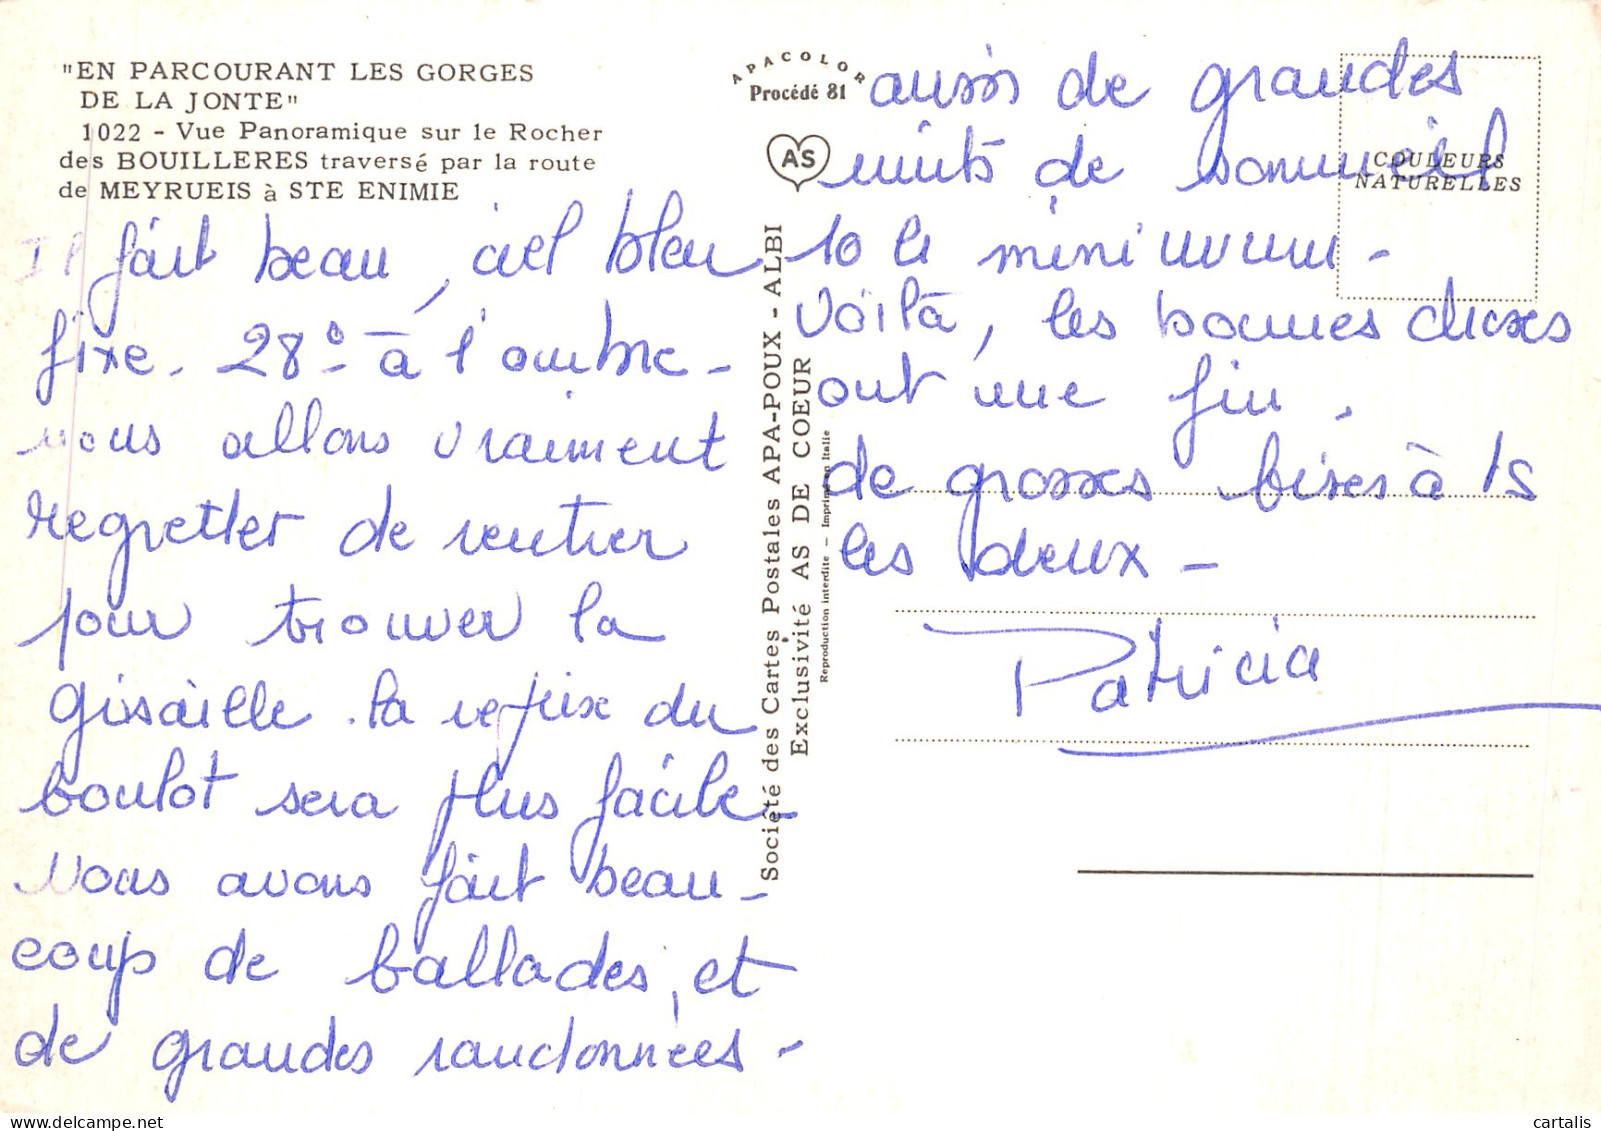 "EN PARCOURANT LES GORGES
DE LA JONTE"
1022 - Vue Panoramique sur le Rocher
des BOUILLERES traversé par la route
de MEYRUEIS à STE ENIMIE
Il fait beau, ciel bleu
fixe. 28° à l'ombre -
nous allons vraiment
regretter de rentrer
pour trouver la
grisaille. la reprise du
boulot sera plus facile -
Nous avons fait beau-
coup de ballades, et
de grandes randonnées -
APACOLOR
Procédé 81
AS
Société des Cartes Postales APA-POUX - ALBI
Exclusivité AS DE COEUR
Reproduction interdite - Imprimé en Italie
COULEURS
NATURELLES
aussi de grandes
nuits de sommeil
10 h minimum -
Voilà, les bonnes choses
ont une fin.
de grosses bises à
les deux -
Patricia
cartalis | Delcampe.net